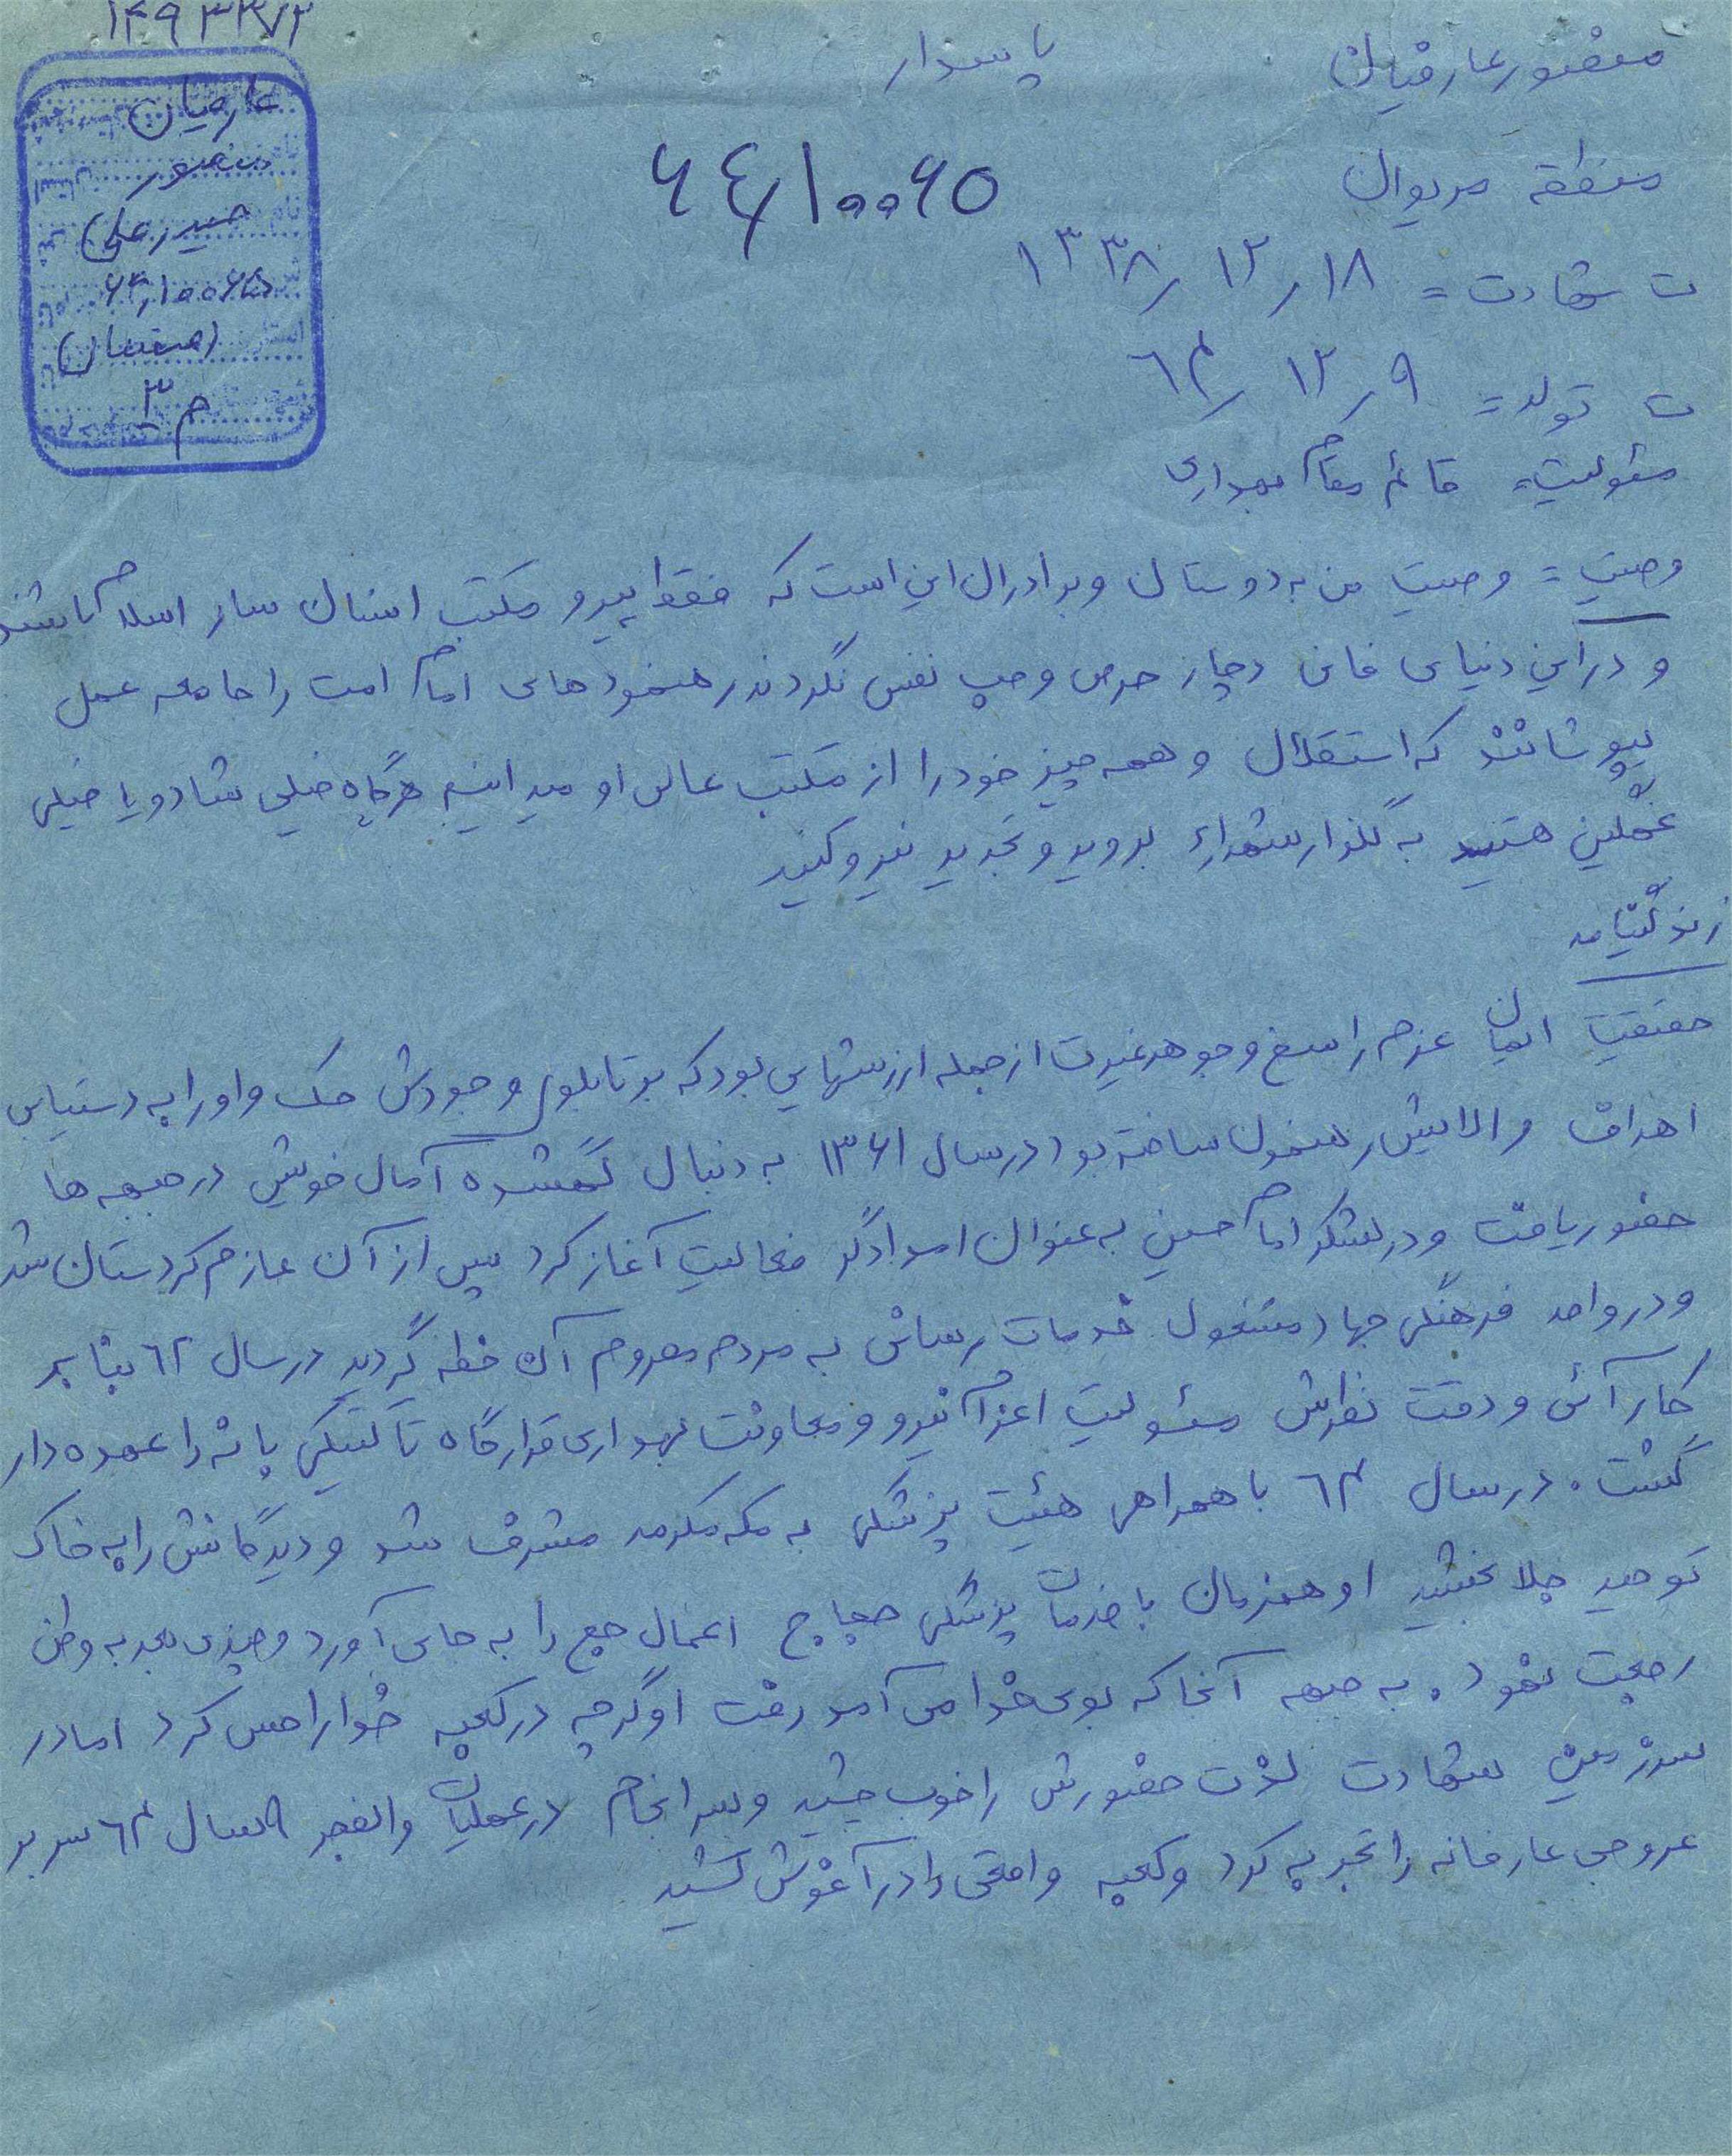 ۱۴۹۳۳۷۲
منصور عارفیان پاسدار
عارفیان
منصور
حیدرعلی
۶۴,۱۰۰۶۵
اصفهان
م ۳
منطقه مریوان
۶۴/۱۰۰۶۵
ت شهادت = ۱۳۳۸/۱۲/۱۸
ت تولد = ۶۴/۱۲/۹
مئولیت = قائم مقام بهداری
وصیت = وصیت من به دوستان و برادران این است که فقط پیرو مکتب انسان ساز اسلام باشند
و در این دنیای فانی دچار حرص و حب نفس نگردند رهنمودهای امام امت را جامعه عمل
بپوشانند که استقلال و همه چیز خود را از مکتب عالی او میدانیم هرگاه خیلی شاد و یا خیلی
غمگین هستید به گلزار شهداء بروید و تجدید نیرو کنید
زندگینامه
حقیقت ایمان عزم راسخ و جوهر غیرت از جمله ارزشهایی بود که بر تابلوی وجودش حک و او را به دستیابی
اهداف والایش رهنمون ساخته بود در سال ۱۳۶۱ به دنبال گمشده آمال خویش در جبهه ها
حضور یافت و در لشکر امام حسین به عنوان امدادگر فعالیت آغاز کرد پس از آن عازم کردستان شد
و در واحد فرهنگی جهاد مشغول خدمات رسانی به مردم محروم آن خطه گردید در سال ۶۲ بنا بر
کارآئی و دقت نظرش مسئولیت اعزام نیرو و معاونت بهداری قرارگاه تاکتیکی بانه را عهده دار
گشت . در سال ۶۴ با همراهی هئیت پزشکی به مکه مکرمه مشرف شد و دیدگانش را به خاک
توحید جلا بخشید او همزمان با خدمات پزشکی حجاج اعمال حج را به جای آورد و چندی بعد به وطن
رجعت نمود . به جبهه آنجا که بوی خدا می آمد رفت او گرچه در کعبه خدا را حس کرد اما در
سرزمین شهادت لذت حضورش را خوب چشید و سرانجام در عملیات والفجر ۹ سال ۶۴ سر بر
عروجی عارفانه را تجربه کرد و کعبه واقعی را در آغوش کشید